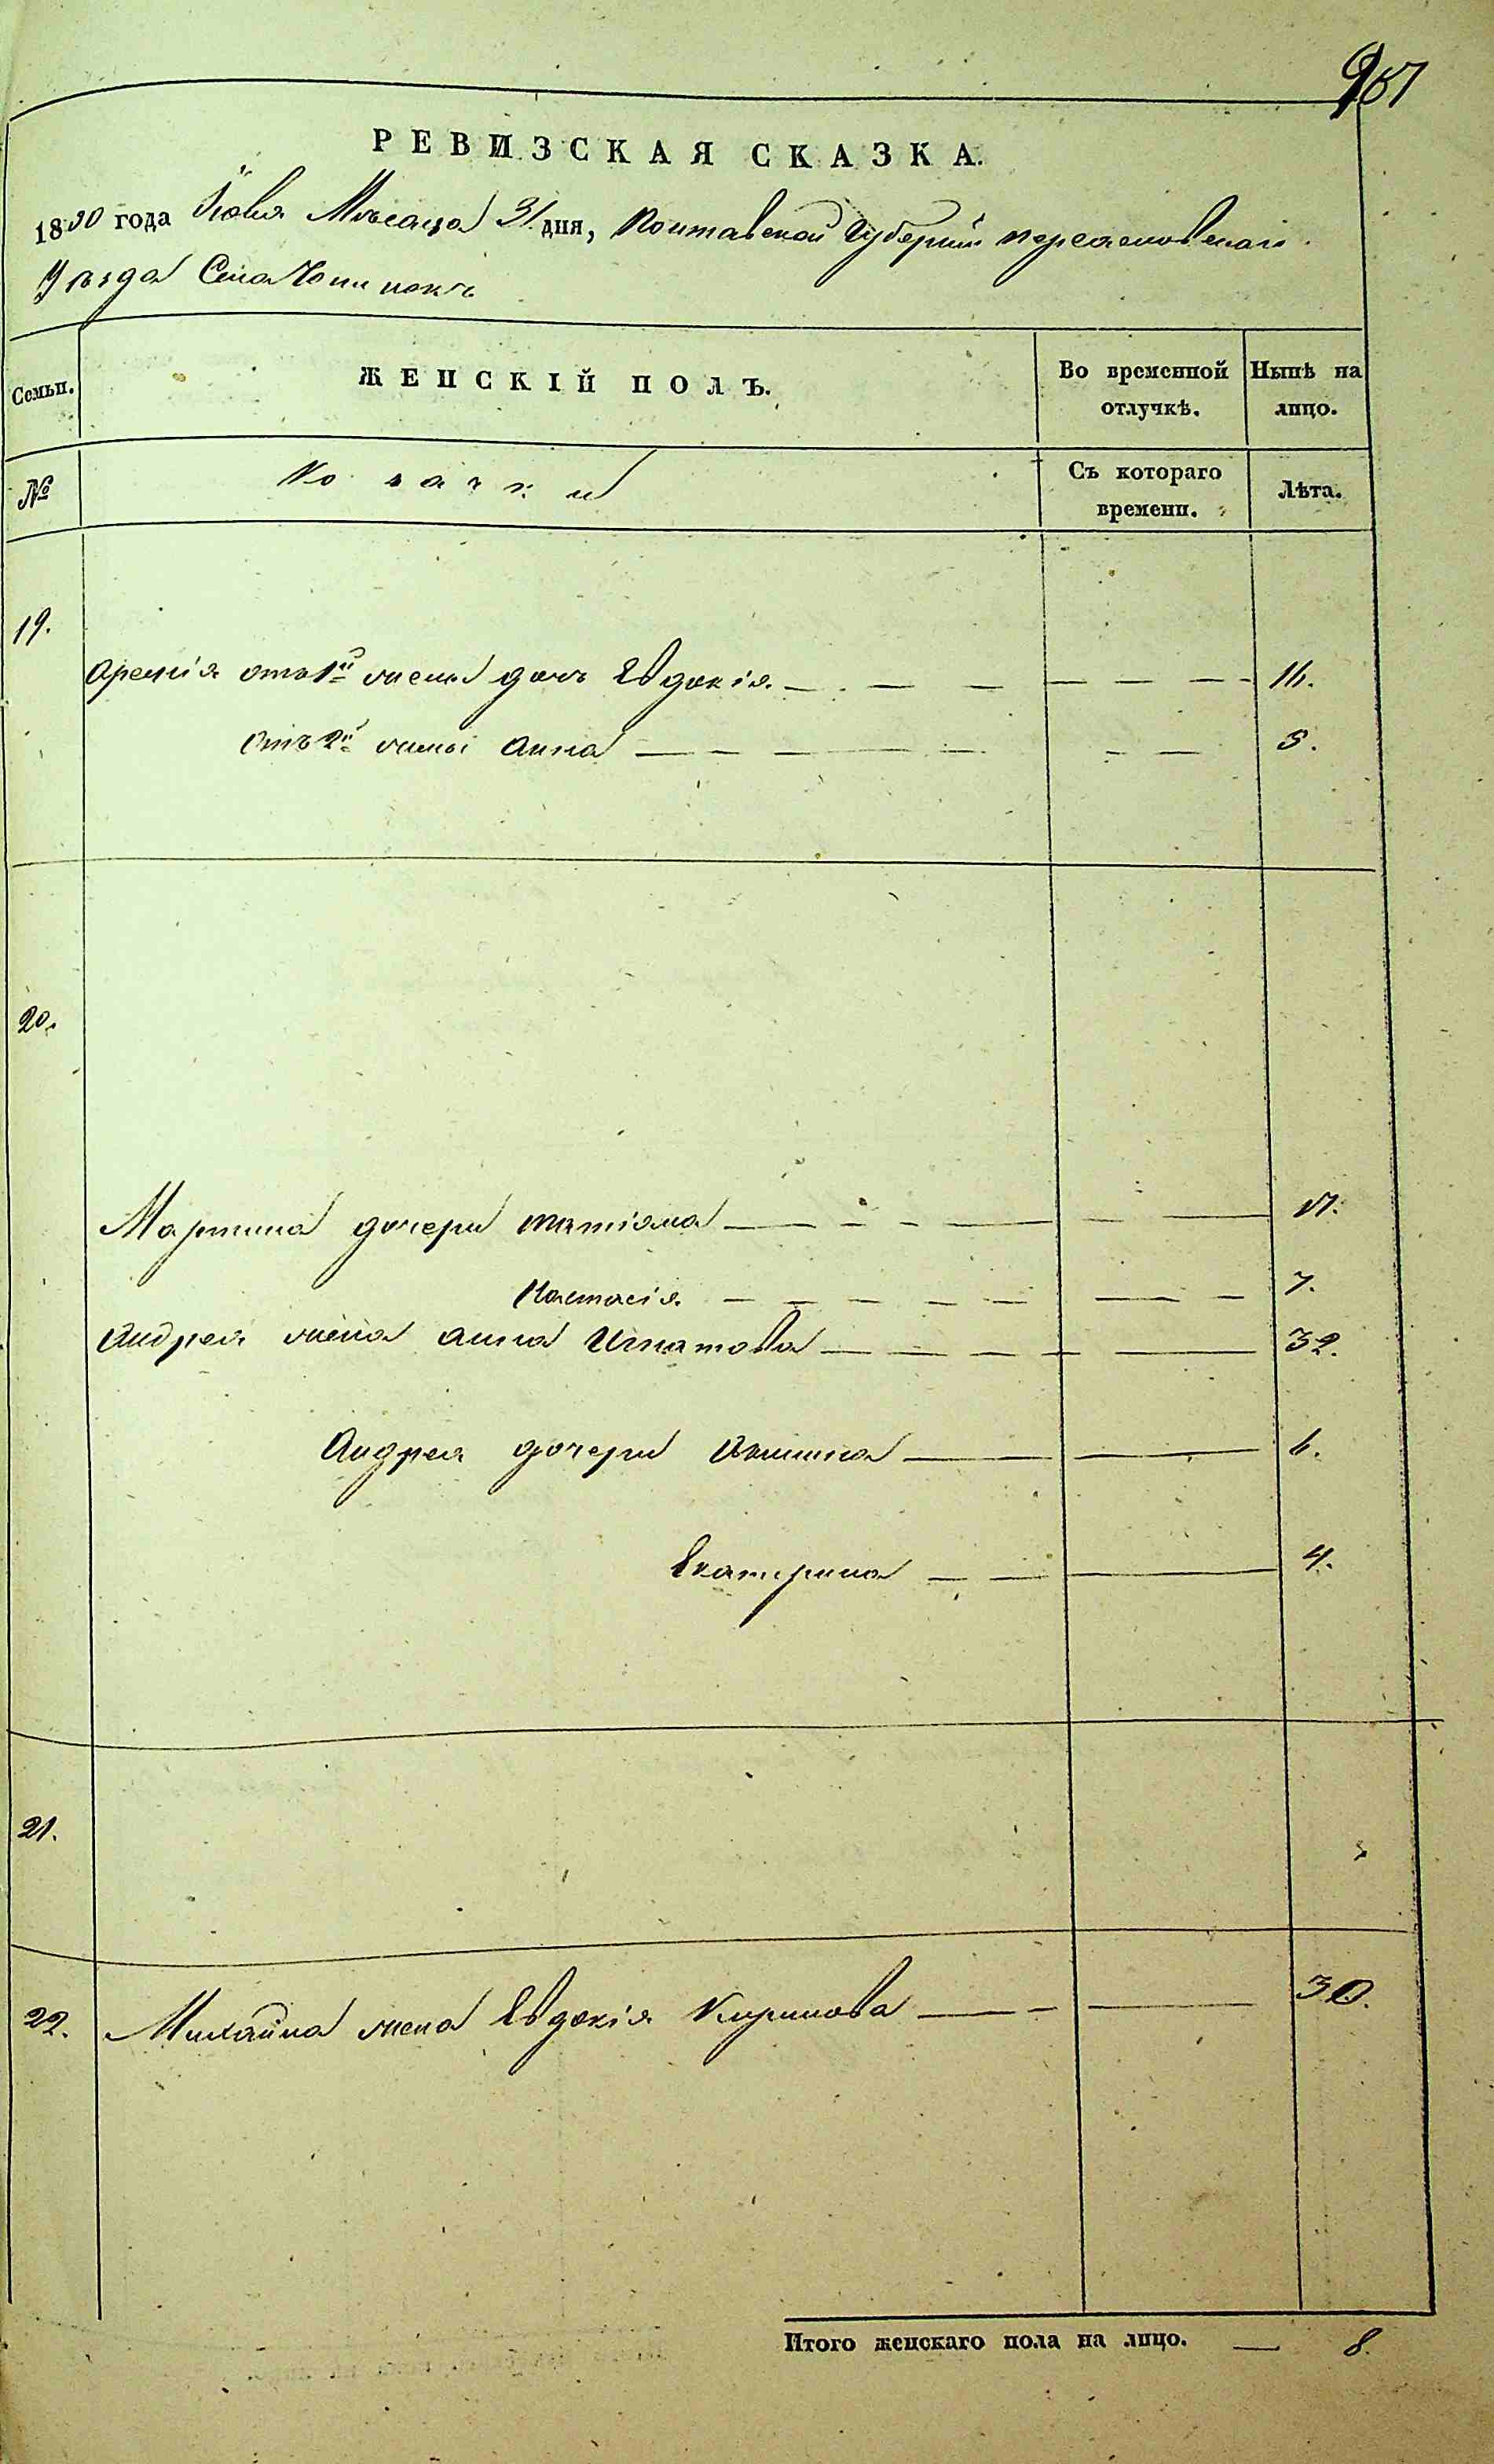 РЕВИЗСКАЯ СКАЗКА.
18 года Мѣсяца 31 дня, Полтавской Губернїи Переясловскаго
Уѣзда Села
Семьи. ЖЕНСКІЙ ПОЛЪ. Во временной отлучкѣ. Нынѣ на лицо.
№ Козачки Съ котораго времени. Лѣта.
19.
отъ 1й жены дочь Евдокія — — — 16.
Отъ 2й жены Анна — — — 5.
20.
Мартина дочери Татіана — — —
Настасія — — — 7.
Андрея жена Анна Игнатова — — — 32.
Андрея дочери — — 6.
Екатерина — — 4.
21.
22. Михайла жена Евдокія Кирилова — — 30.
Итого женскаго пола на лицо. — 8.